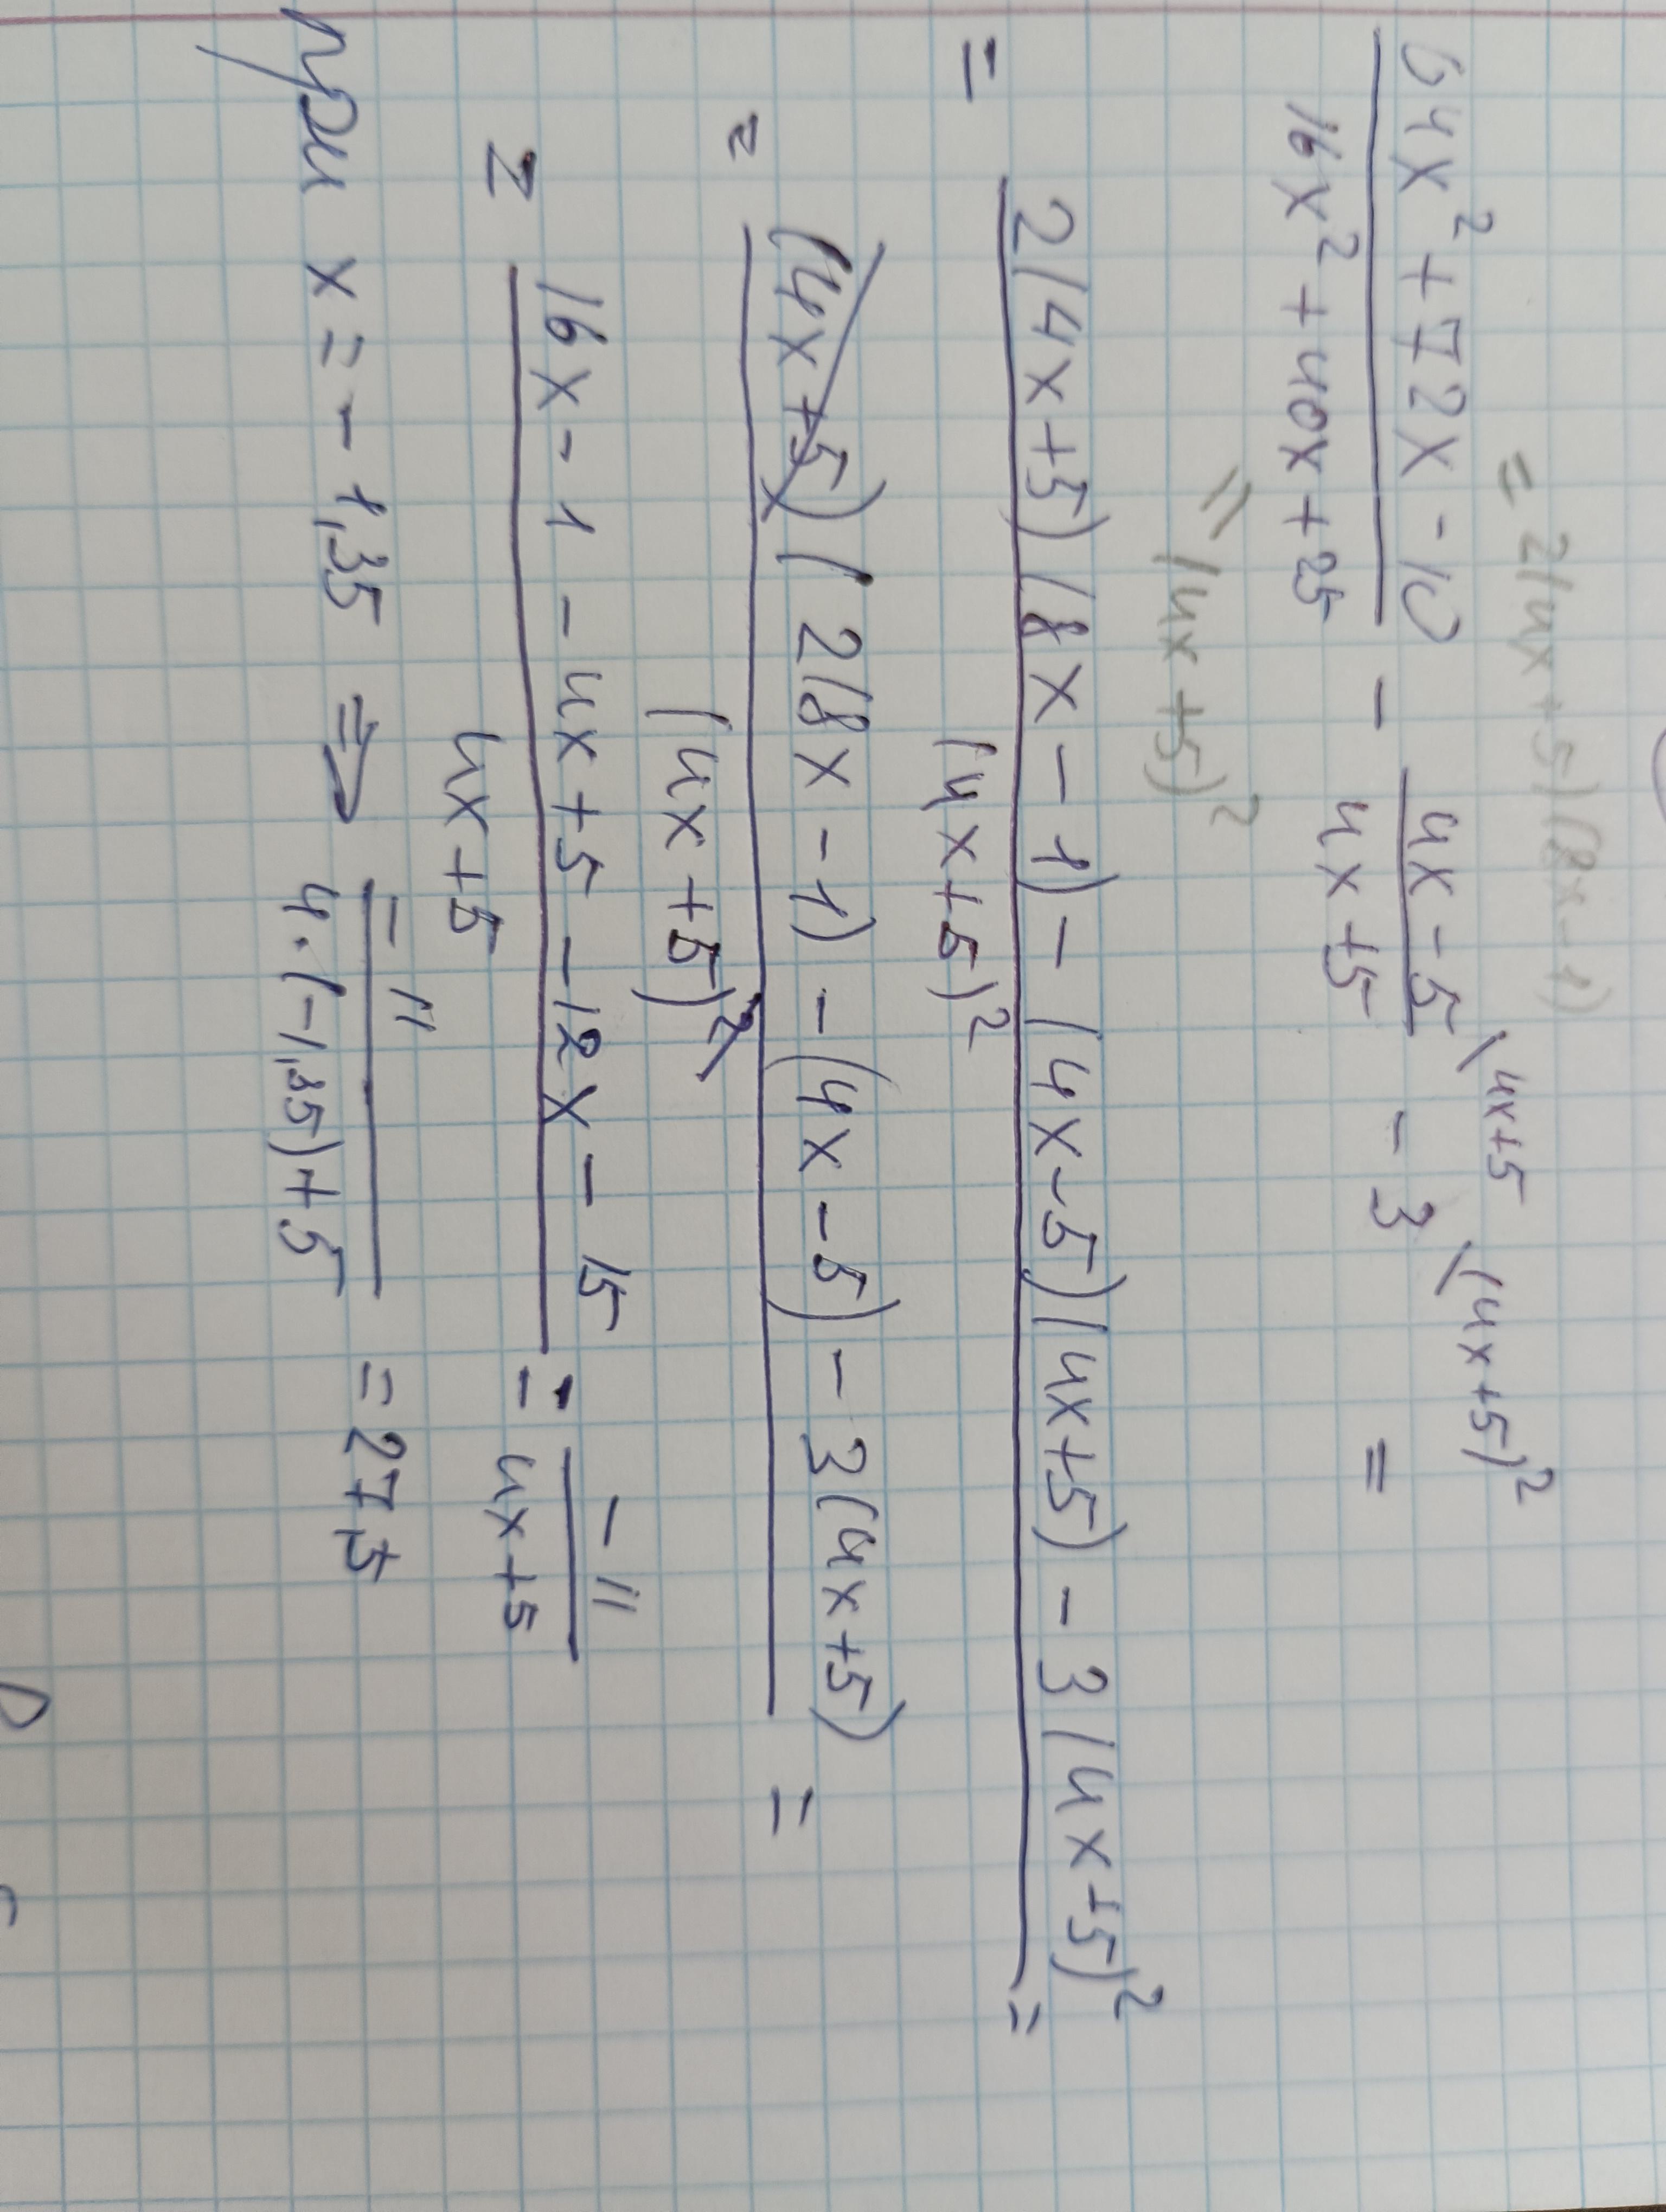 = 2(4x+5)(8x-1)
64x² + 72x - 10 / 16x² + 40x + 25 - 4x-5 / 4x+5 \4x+5 - 3 \(4x+5)² =
= (4x+5)²
= 2(4x+5)(8x-1) - (4x-5)(4x+5) - 3(4x+5)² / (4x+5)² =
= (4x+5)(2(8x-1) - (4x-5) - 3(4x+5)) / (4x+5)² =
= 16x - 1 - 4x + 5 - 12x - 15 / 4x+5 = -11 / 4x+5
при x = -1,35 ⇒ -11 / 4·(-1,35)+5 = 27,5